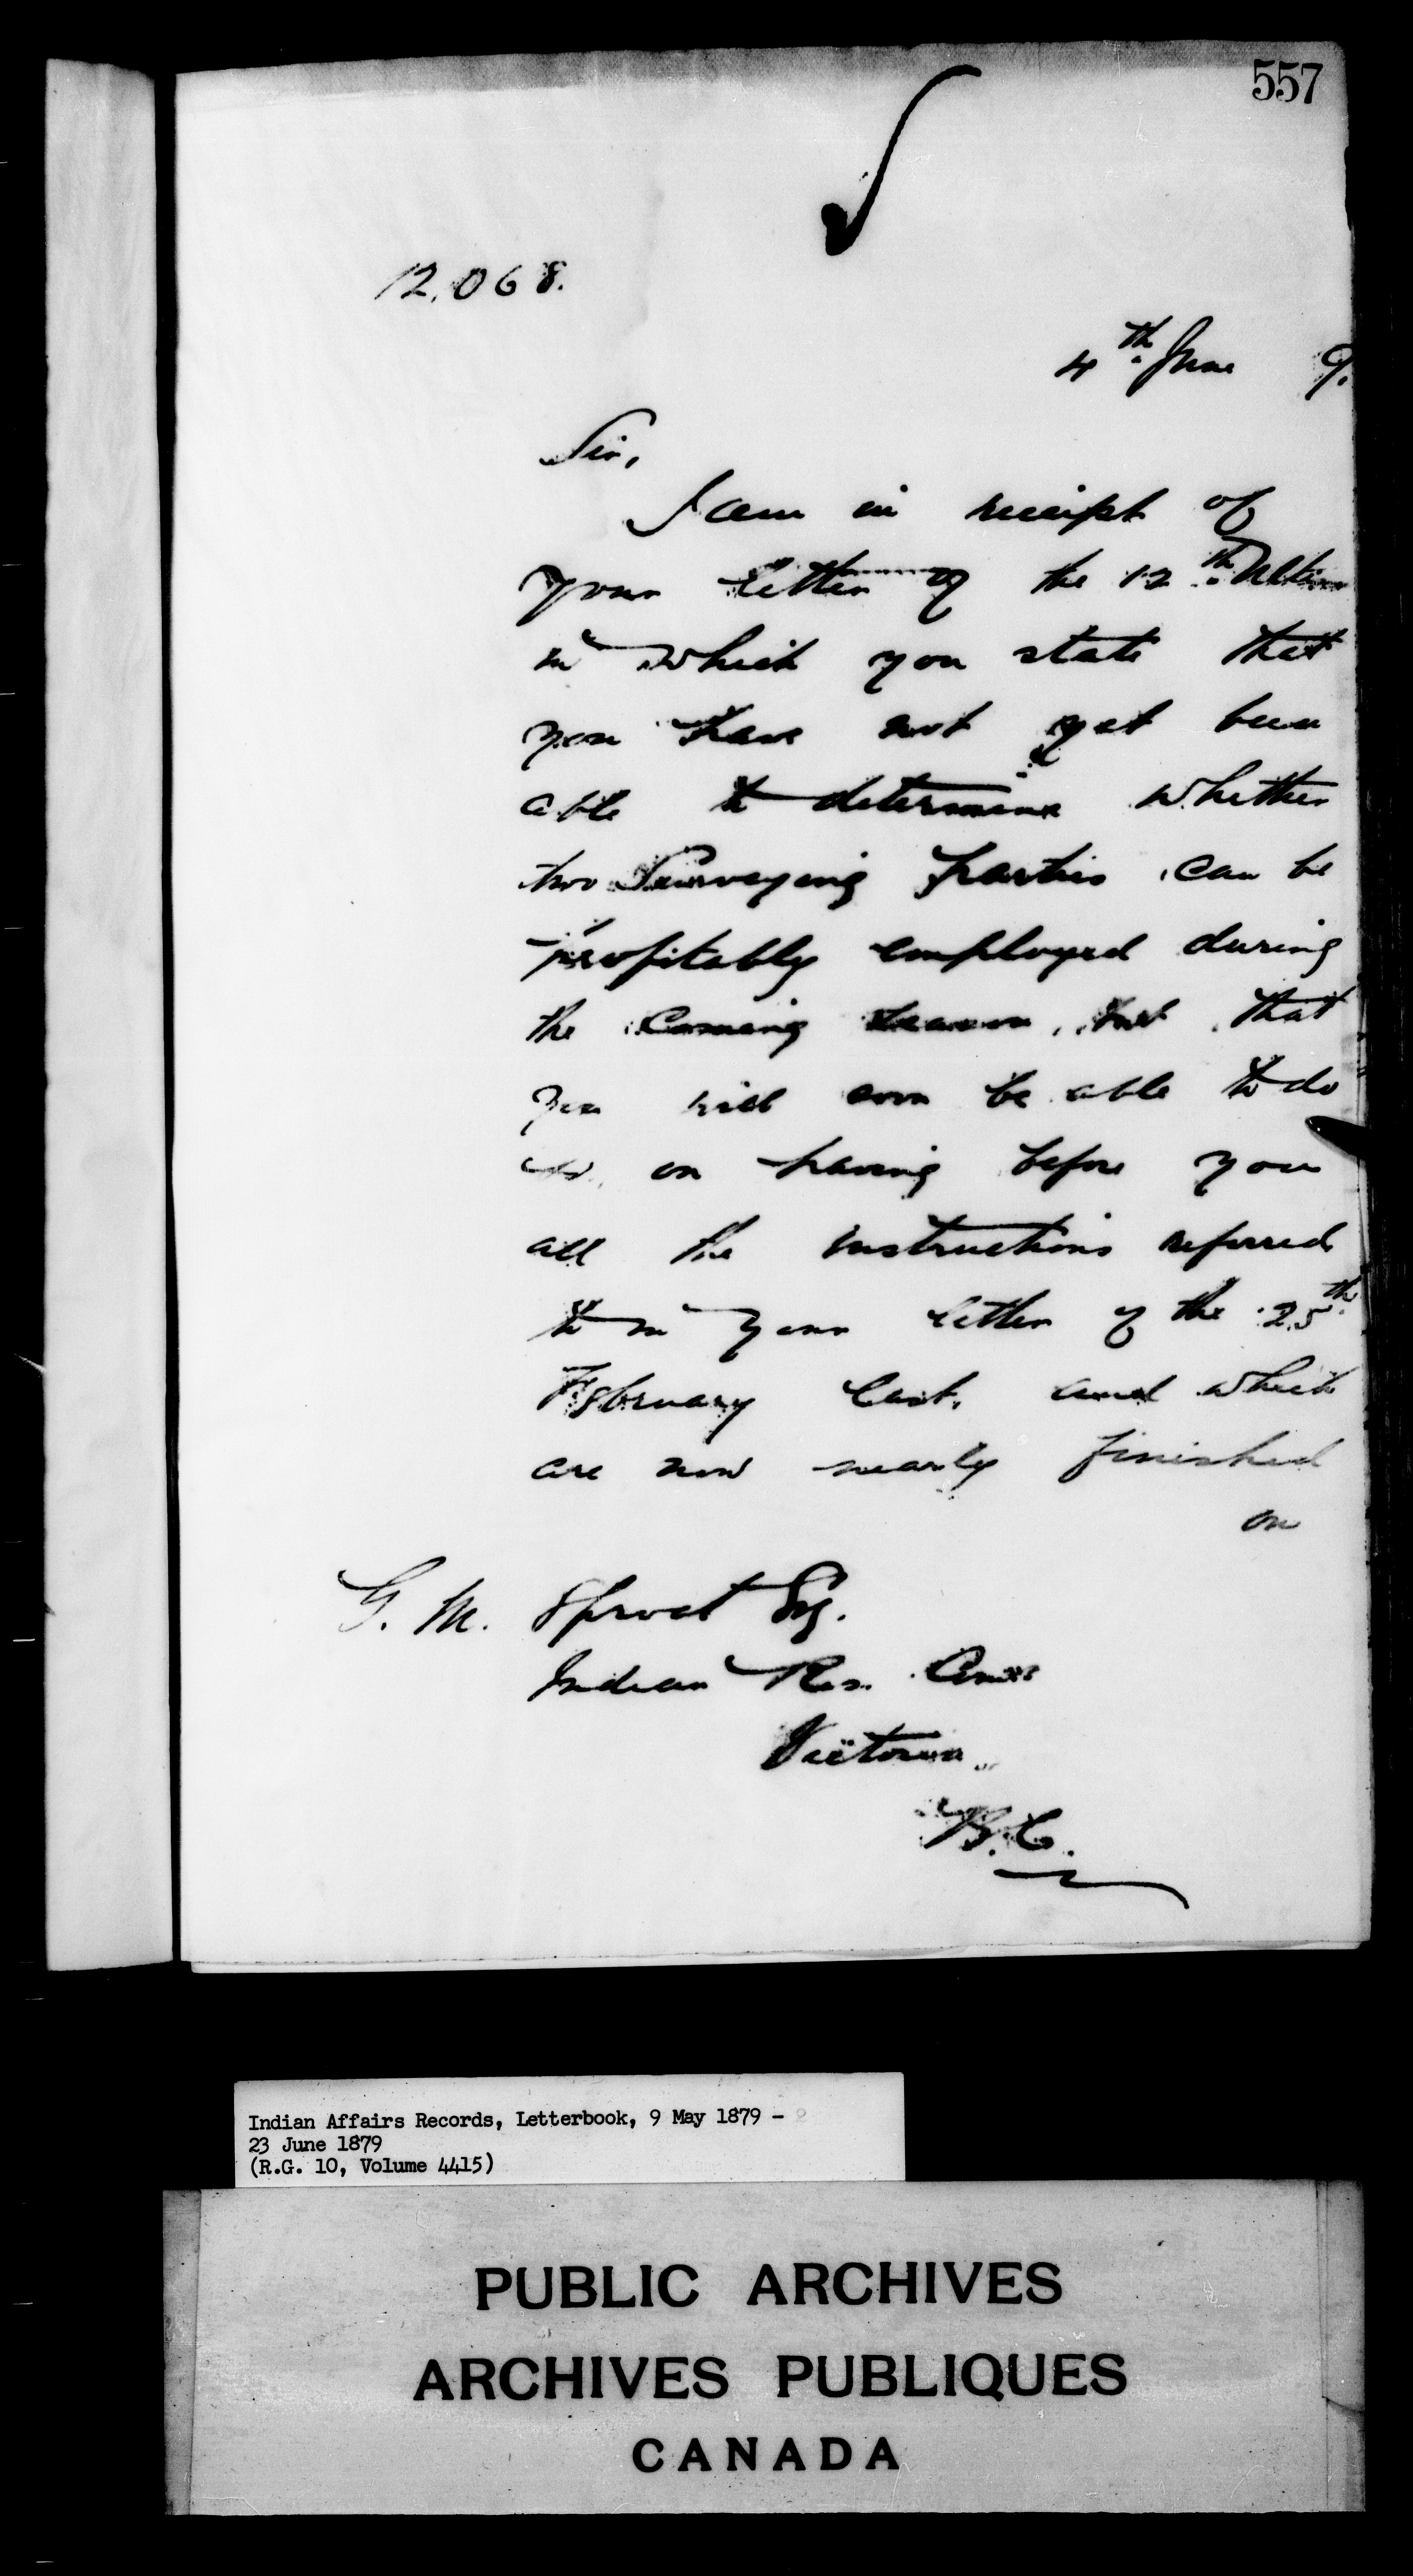 557
12,068.
4th June 9.
Sir,
I am in receipt of
your letter of the 12th Ulto
in which you state that
you have not yet been
able to determine whether
two Surveying parties can be
profitably employed during
the Coming season, but that
you will soon be able to do
so, on having before you
all the instructions referred
to in your letter of the 25th
February last, and which
are now nearly finished
on
G. M. Sproat Esq.
Indian Res. Comr
Victoria,
B.C.
Indian Affairs Records, Letterbook, 9 May 1879 -
23 June 1879
(R.G. 10, Volume 4415)
PUBLIC ARCHIVES
ARCHIVES PUBLIQUES
CANADA